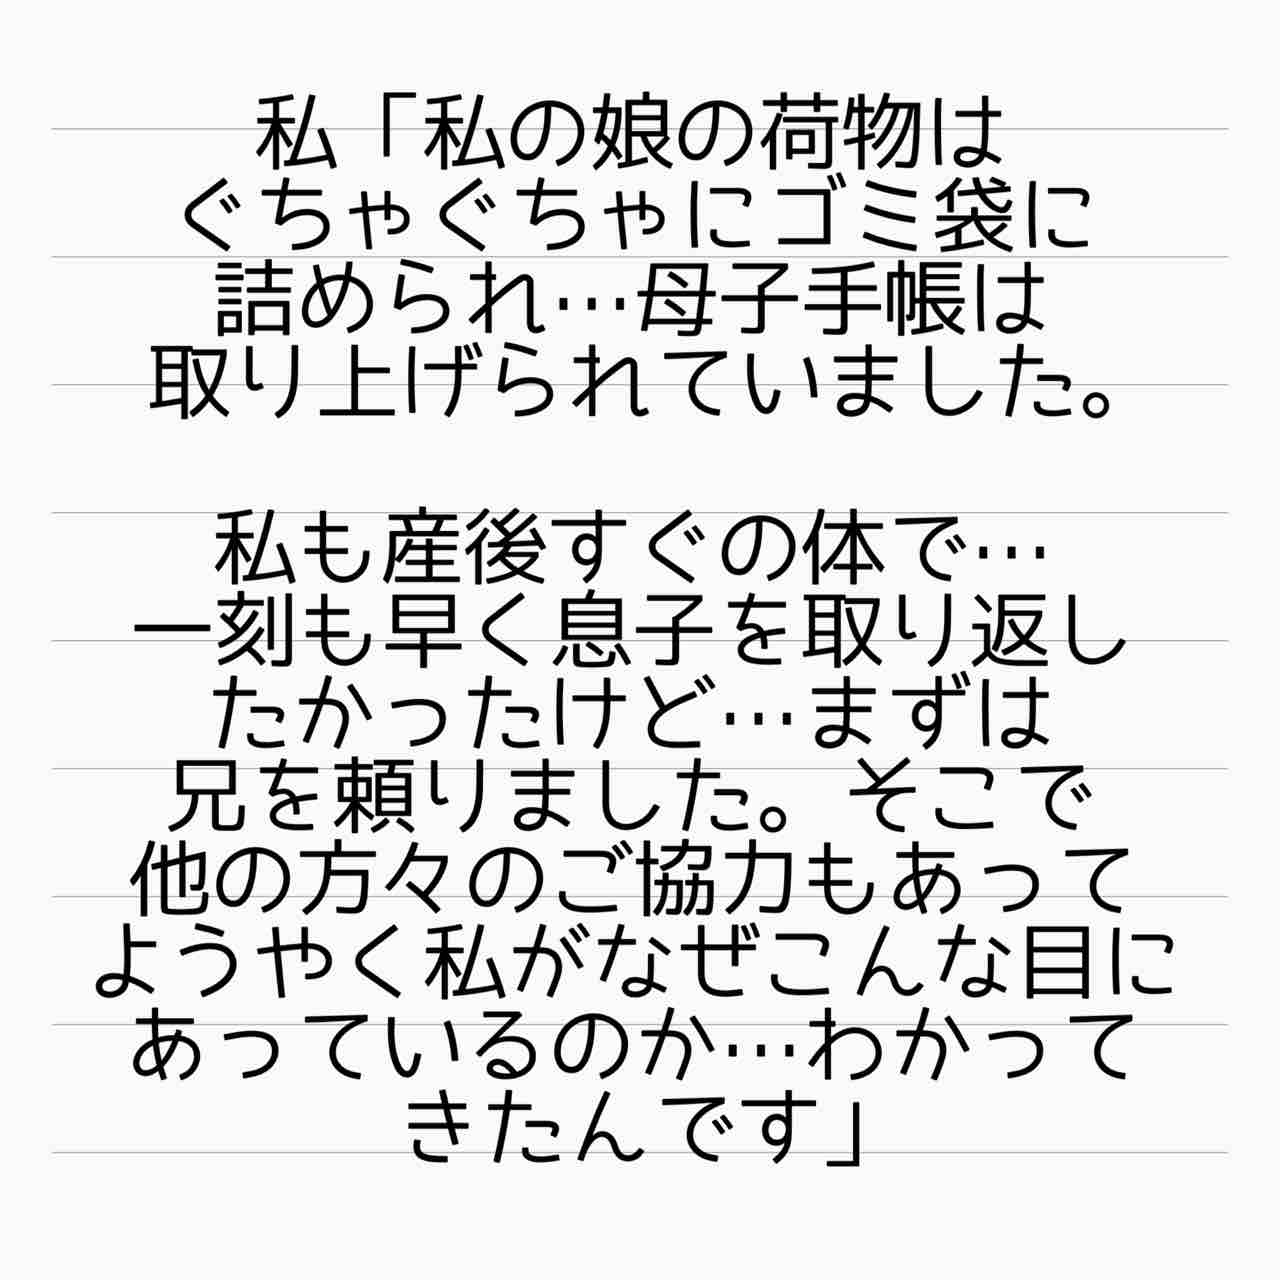 私「私の娘の荷物は
ぐちゃぐちゃにゴミ袋に
詰められ…母子手帳は
取り上げられていました。
私も産後すぐの体で…
一刻も早く息子を取り返し
たかったけど…まずは
兄を頼りました。そこで
他の方々のご協力もあって
ようやく私がなぜこんな目に
あっているのか…わかって
きたんです」